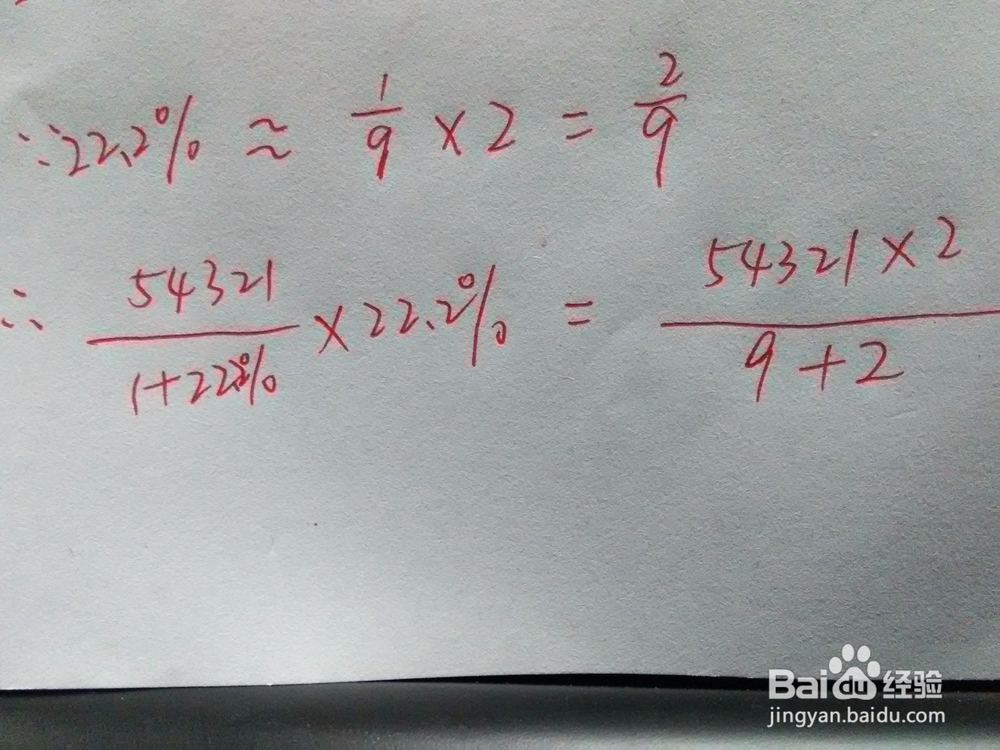 ∵22.2% ≈ 1/9 × 2 = 2/9
∴ 54321/(1+22.2%) × 22.2% = (54321×2)/(9+2)
Baidu 经验
jingyan.baidu.com